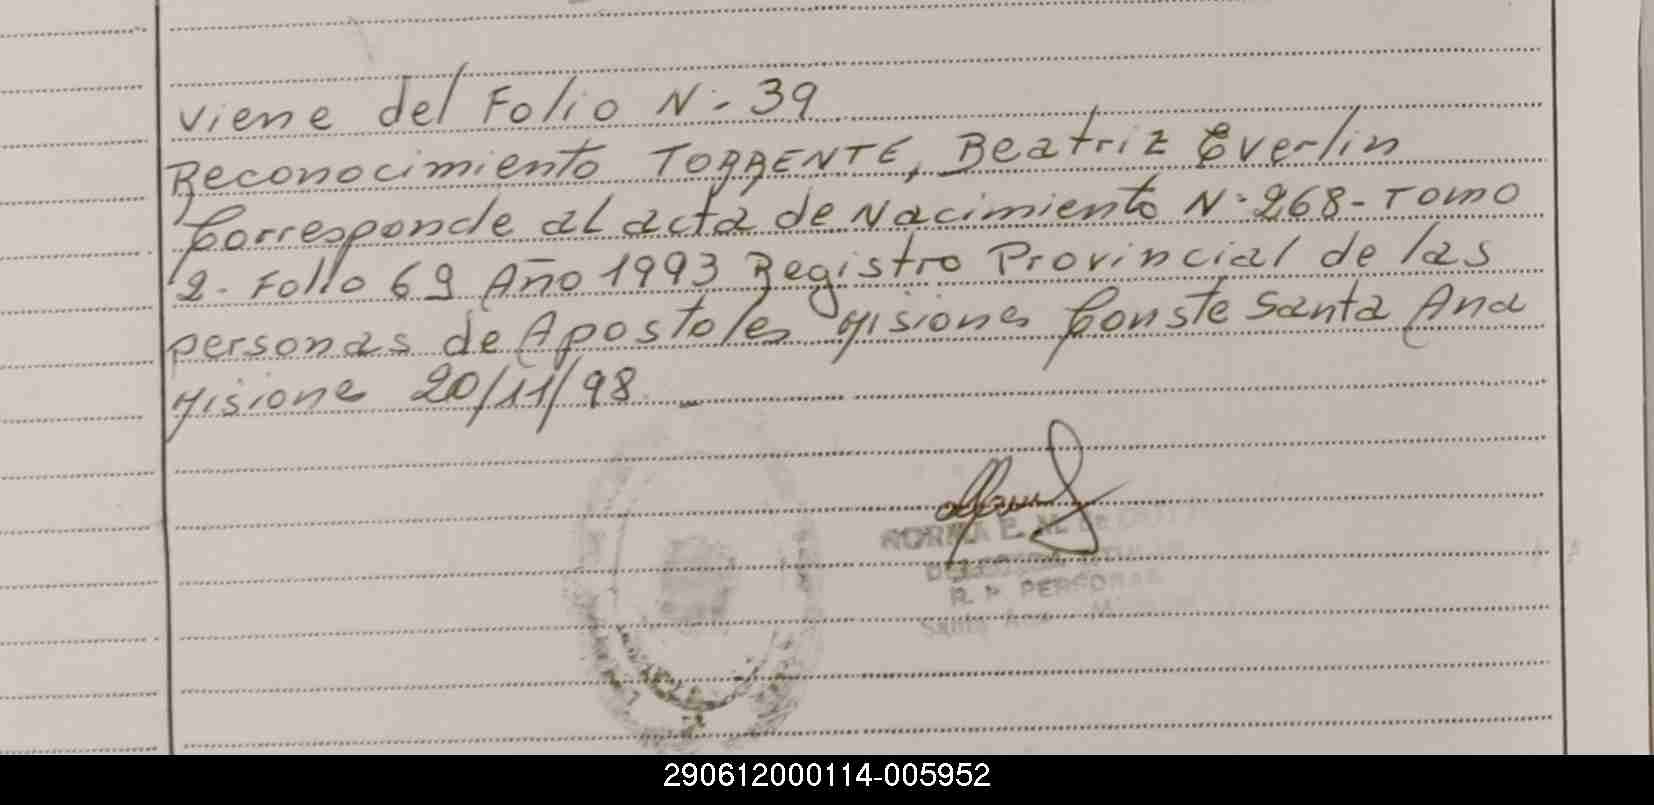 Viene del Folio N:- 39
Reconocimiento TORRENTE, Beatriz Everlin
Corresponde al acta de Nacimiento N:268-Tomo
2-Folio 69 Año 1993 Registro Provincial de las
personas de Apostoles Misiones Conste Santa Ana
Misiones 20/11/98.-
NORMA E.
R. P. PERSONAS
Santa Ana
290612000114-005952